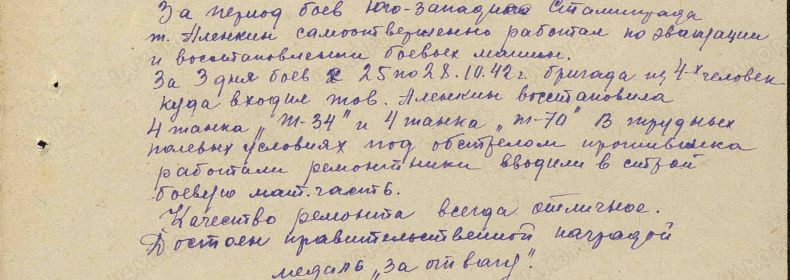 За период боев Юго-Западнее Сталинграда
т. Аленкин самоотверженно работал по эвакуации
и восстановлении боевых машин.
За 3 дня боев с 25 по 28.10.42 г. бригада из 4-х человек
куда входил тов. Аленкин восстановила
4 танка „Т-34" и 4 танка „Т-70" В трудных
полевых условиях под обстрелом противника
работали ремонтники вводили в строй
боевую мат. часть.
Качество ремонта всегда отличное.
Достоен правительственной наградой
медаль „За отвагу".